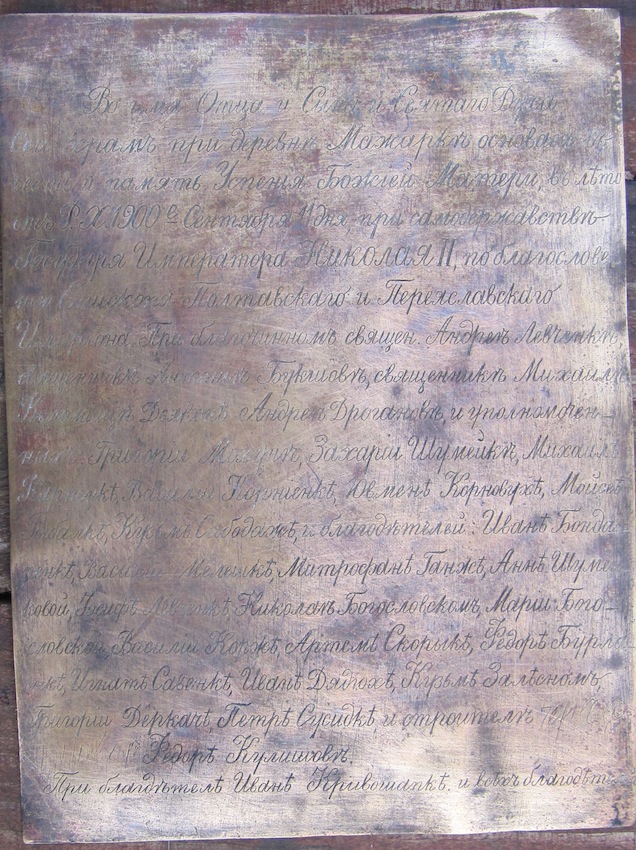 Во имя Отца и Сына и Святаго Духа
сей храмъ при деревнѣ Мажаркѣ основася въ
и память Успенія Божіей Матери, въ лѣто
отъ Р. Х. 1900 го Сентября 11 дня, при самодержавствѣ
Государя Императора Николая II, по благослове
нію Епископа Полтавскаго и Переяславскаго
При благочинномъ священ. Андреѣ Левченкѣ
священникѣ Михаилѣ
Андреѣ Дрогановѣ, и уполномочен-
ныхъ Григоріи Захаріи Шумейкѣ, Михаилѣ
Василіи Корніенкѣ, Ювменѣ Корновухѣ, Моисеѣ
Кузьмѣ Слободяжѣ, и благодѣтелей: Иванѣ Бонда
ренкѣ, Василіи Мелешкѣ, Митрофанѣ Ганжѣ, Аннѣ Шумей
ковой, Николаѣ Богословскомъ, Маріи Бого-
словской, Василіи Коржѣ, Артемѣ Скорыкѣ, Федорѣ Бурло
Игнатѣ Савенкѣ, Иванѣ Дядюхѣ, Кузьмѣ Залѣсномъ,
Григоріи Деркачѣ, Петрѣ Сусидкѣ, и строителѣ
Федорѣ Кулишовѣ.
При благдѣтелѣ Иванѣ Кривошапкѣ, и всѣхъ благодѣте